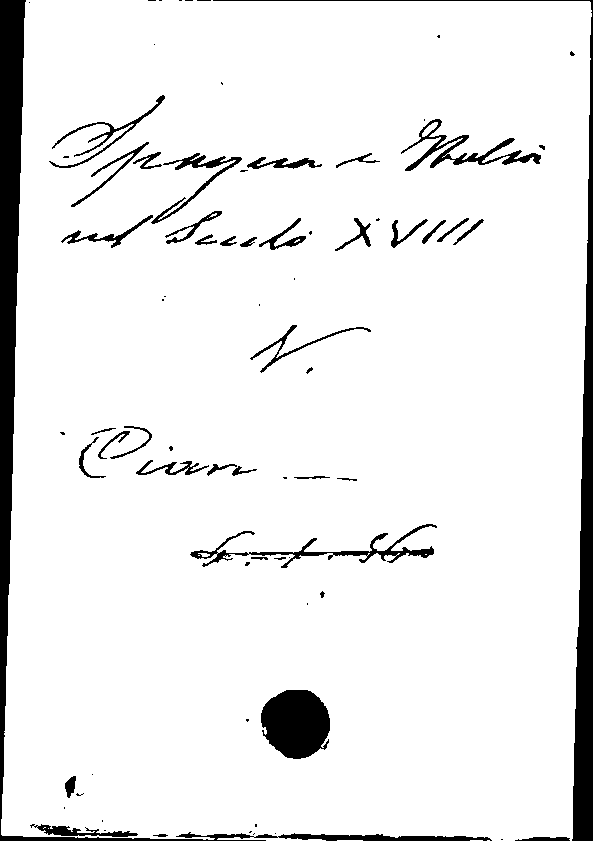 Spagna e Italia
nel Secolo XVIII
V.
Cian —